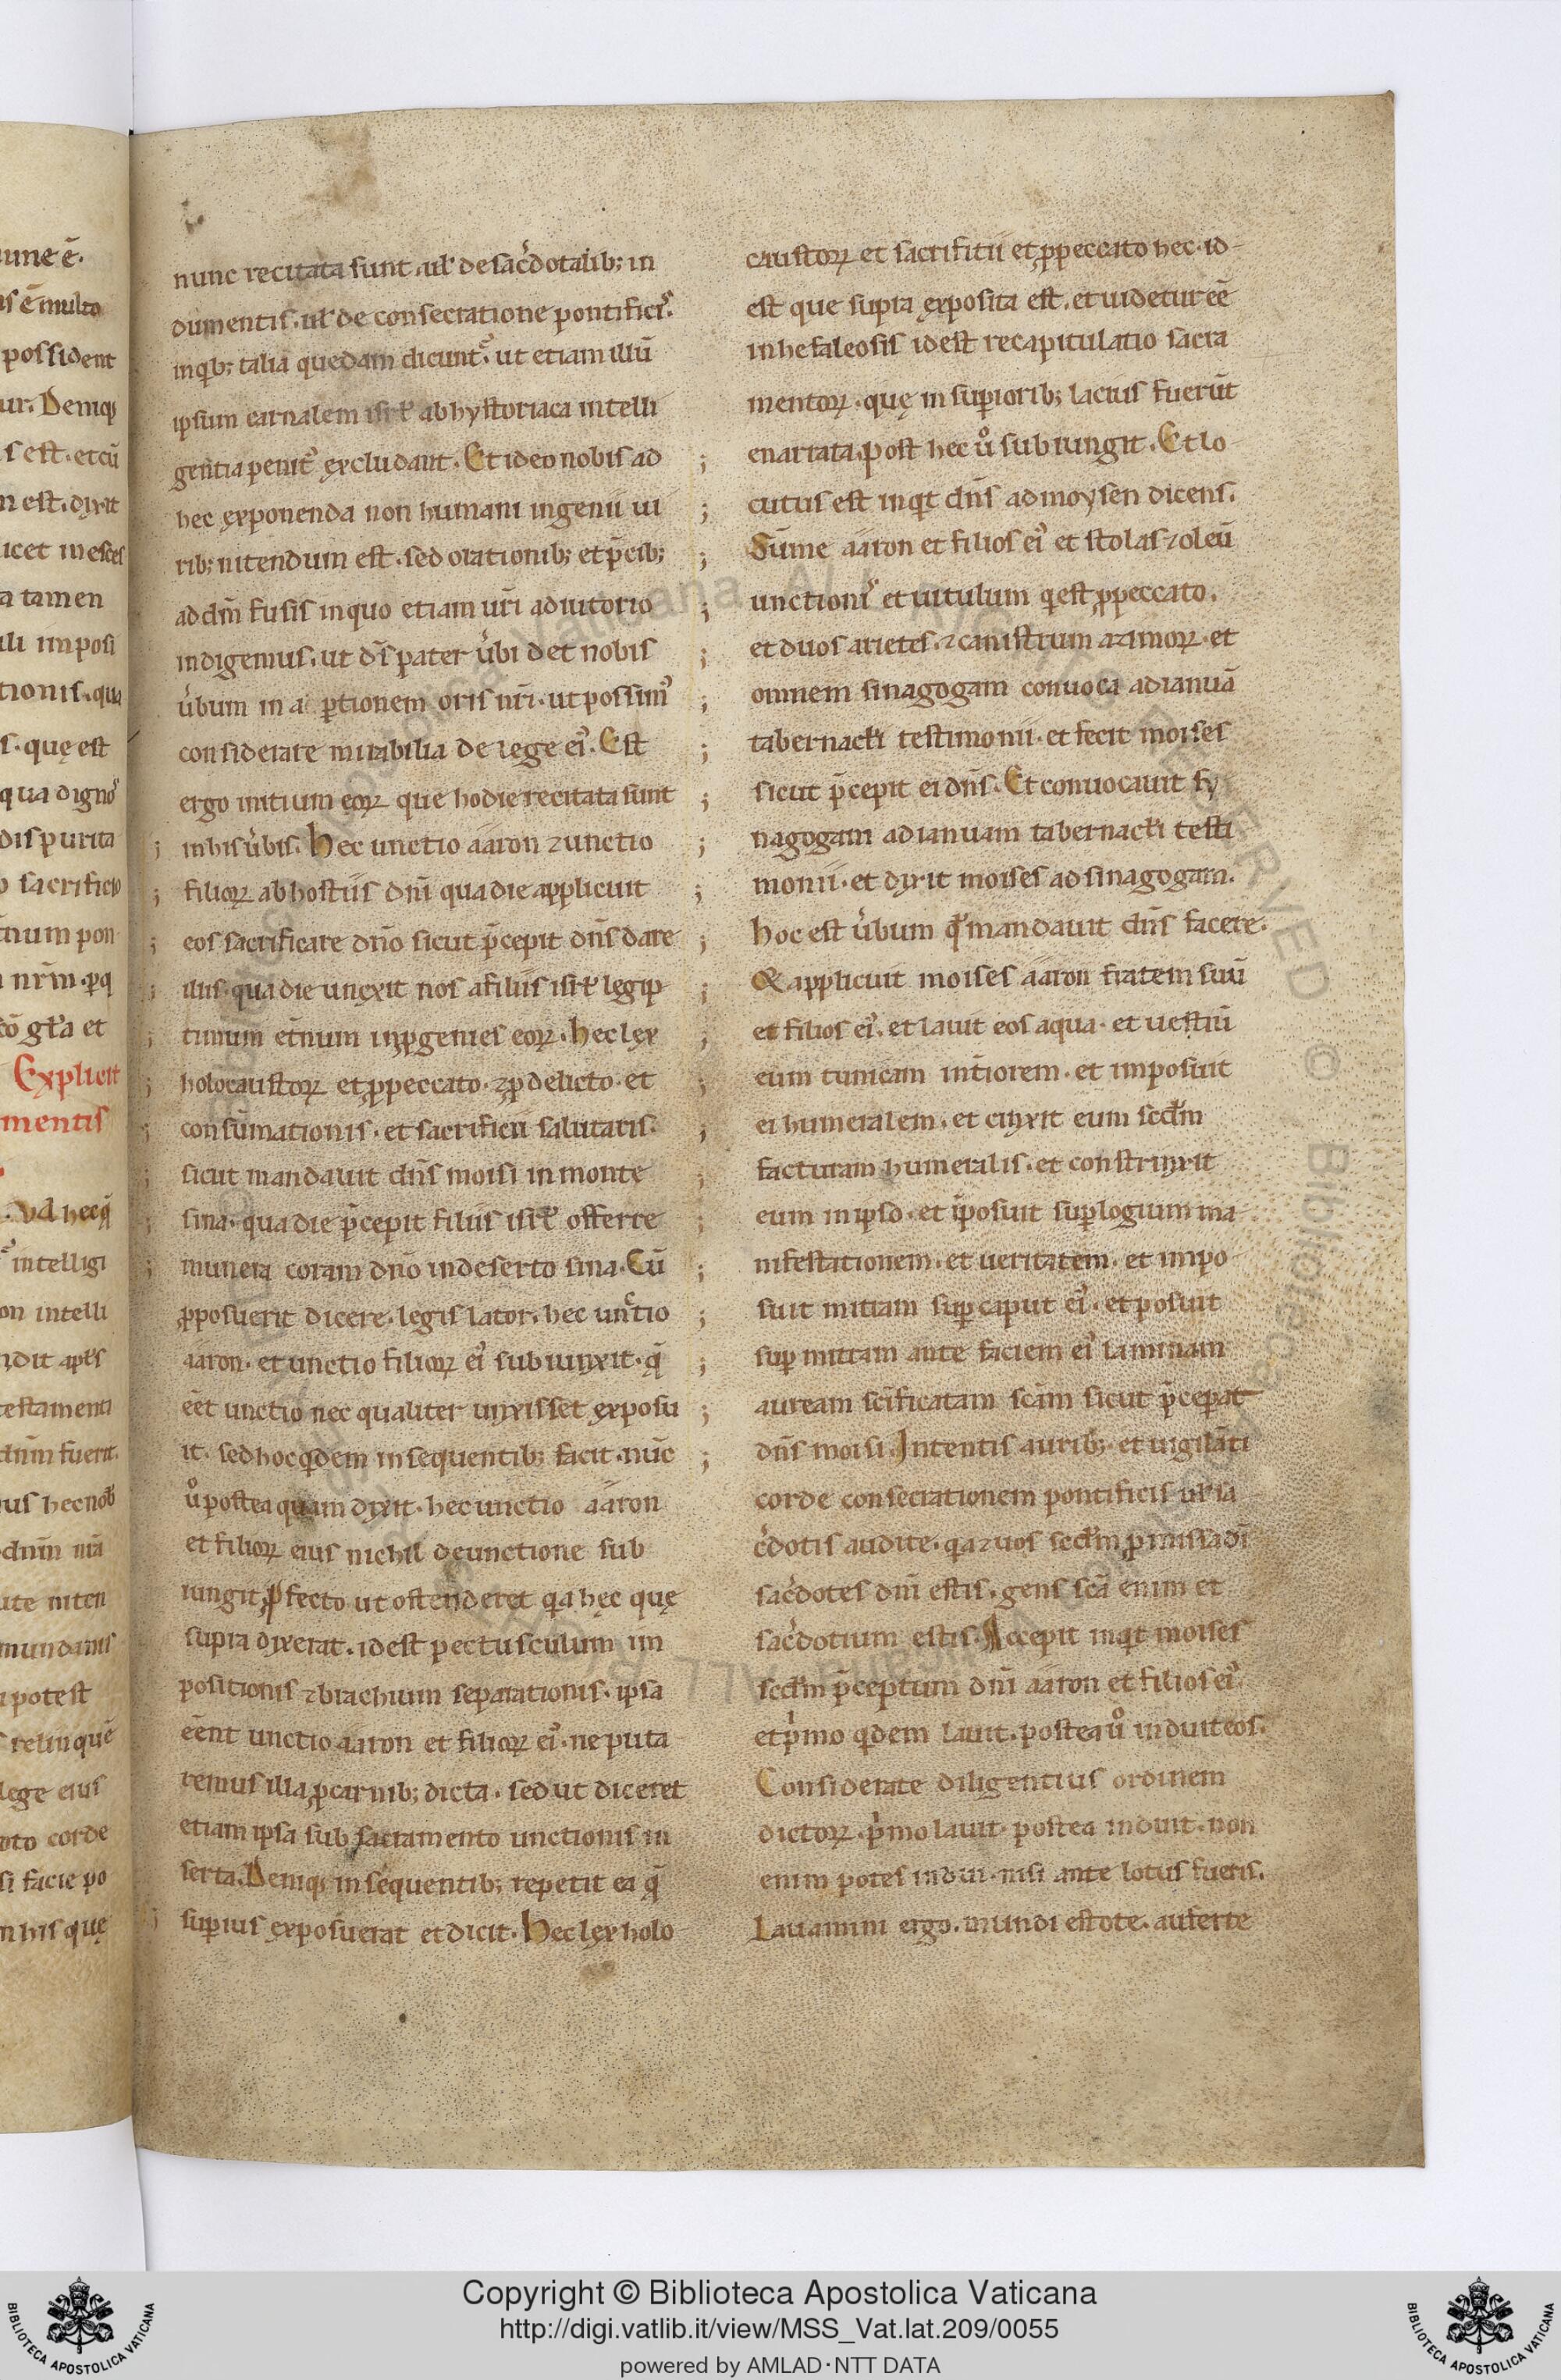 nunc recitata sunt. ul̃ de sac̃dotalib; in
dumentis. ul̃ de consecratione pontificis.
inq̃b; talia quedam dicunt̃. ut etiam illũ
ipsum carnalem isrł ab hystoriaca intelli
gentia penit̃ excludant. Et ideo nobis ad
hec exponenda non humani ingenii ui
rib; nitendum est. sed orationib; et p̃cib;
ad dñm fusis in quo etiam ur̃i adiutorio
indigemus. ut d̃s pater u̓bi det nobis
u̓bum in apꝑtionem oris nr̃i. ut possim᷒
considerare mirabilia de lege ei᷒. Est
ergo initium eoꝝ que hodie recitata sunt
in his u̓bis. Hec unctio aaron ⁊ unctio
filioꝝ ab hostiis dñi qua die applicuit
eos sacrificare dño sicut p̃cepit dñs dare
illis. qua die unexit nos a filiis isrł legip
timum et̃num in ꝓgenies eoꝝ. hec lex
holocaustoꝝ et ꝓ peccato. ⁊ ꝓ delicto. et
consũmationis. et sacrificii salutaris.
sicut mandauit dñs moisi in monte
sina. qua die p̃cepit filiis isrł offerre
munera coram dño in deserto sina. Cũ
ꝓposuerit dicere. legis lator. hec unctio
aaron. et unctio filioꝝ ei᷒ subiunxit. q̃
eẽt unctio nec qualiter unxisset exposu
it. sed hoc q̃dem in sequentib; facit. nũc
u̓o postea quam dixit. hec unctio aaron
et filioꝝ eius nichil de unctione sub
iungit, ꝓfecto ut ostenderet q̃a hęc quę
supra dixerat. id est pectusculum im
positionis ⁊ brachium separationis. ipsa
eẽnt unctio aaron et filioꝝ ei᷒. ne puta
remus illa, ꝓ carnib; dicta. sed ut diceret
etiam ipsa sub sacramento unctionis in
serta. Deniq; in sequentib; repetit ea q̃
sup̱ius exposuerat et dicit. Hec lex holo
caustoꝝ et sacrifitii et ꝓ peccato hec. id
est que supra exposita est. et uidetur eẽ
in hefaleosis id est recapitulatio sacra
mentoꝝ. quę in sup̱iorib; lacius fuerũt
enarrata. post hec u̓o subiungit. Et lo
cutus est inq̃t dñs ad moysen dicens.
Sũme aaron et filios ei᷒ et stolas ⁊ oleũ
unctionis et uitulum q̃ est ꝓ peccato.
et duos arietes. ⁊ canistrum azimoꝝ. et
omnem sinagogam conuoca ad ianuã
tabernacłi testimonii. et fecit moises
sicut p̃cepit ei dñs. Et conuocauit sy
nagogam ad ianuam tabernacłi testi
monii. et dixit moises ad sinagogam.
hoc est u̓bum q̃ mandauit dñs facere.
& applicuit moises aaron fratem suũ
et filios ei᷒. et lauit eos aqua. et uestiũ
eum tunicam int̃iorem. et imposuit
ei humeralem. et cinxit eum scđm
facturam humeralis. et constrinxit
eum in ipso. et ĩposuit sup̱ logium ma
nifestationem. et ueritatem. et impo
suit mitram sup̱ caput ei᷒. et posuit
sup̱ mitram ante faciem ei᷒ laminam
auream sc̃ificatam sc̃am sicut p̃ceperat
dñs moisi. Intentis aurib; et uigilãti
corde consecrationem pontificis ul̃ sa
c̃dotis audite. q̃a ⁊ uos scđm ꝓmissa dĩ
sac̃dotes dñi estis. gens sc̃a enim et
sac̃dotium estis. Accepit inq̃t moises
scđm p̃ceptum dñi aaron et filios ei᷒
et p̃mo q̃dem lauit. postea u̓o induit eos.
Considerate diligentius ordinem
dictoꝝ. p̃mo lauit. postea induit. non
enim potes indui. nisi ante lotus fueris.
Lauamini ergo. mundi estote. auferte
Copyright © Biblioteca Apostolica Vaticana
http://digi.vatlib.it/view/MSS_Vat.lat.209/0055
powered by AMLAD·NTT DATA